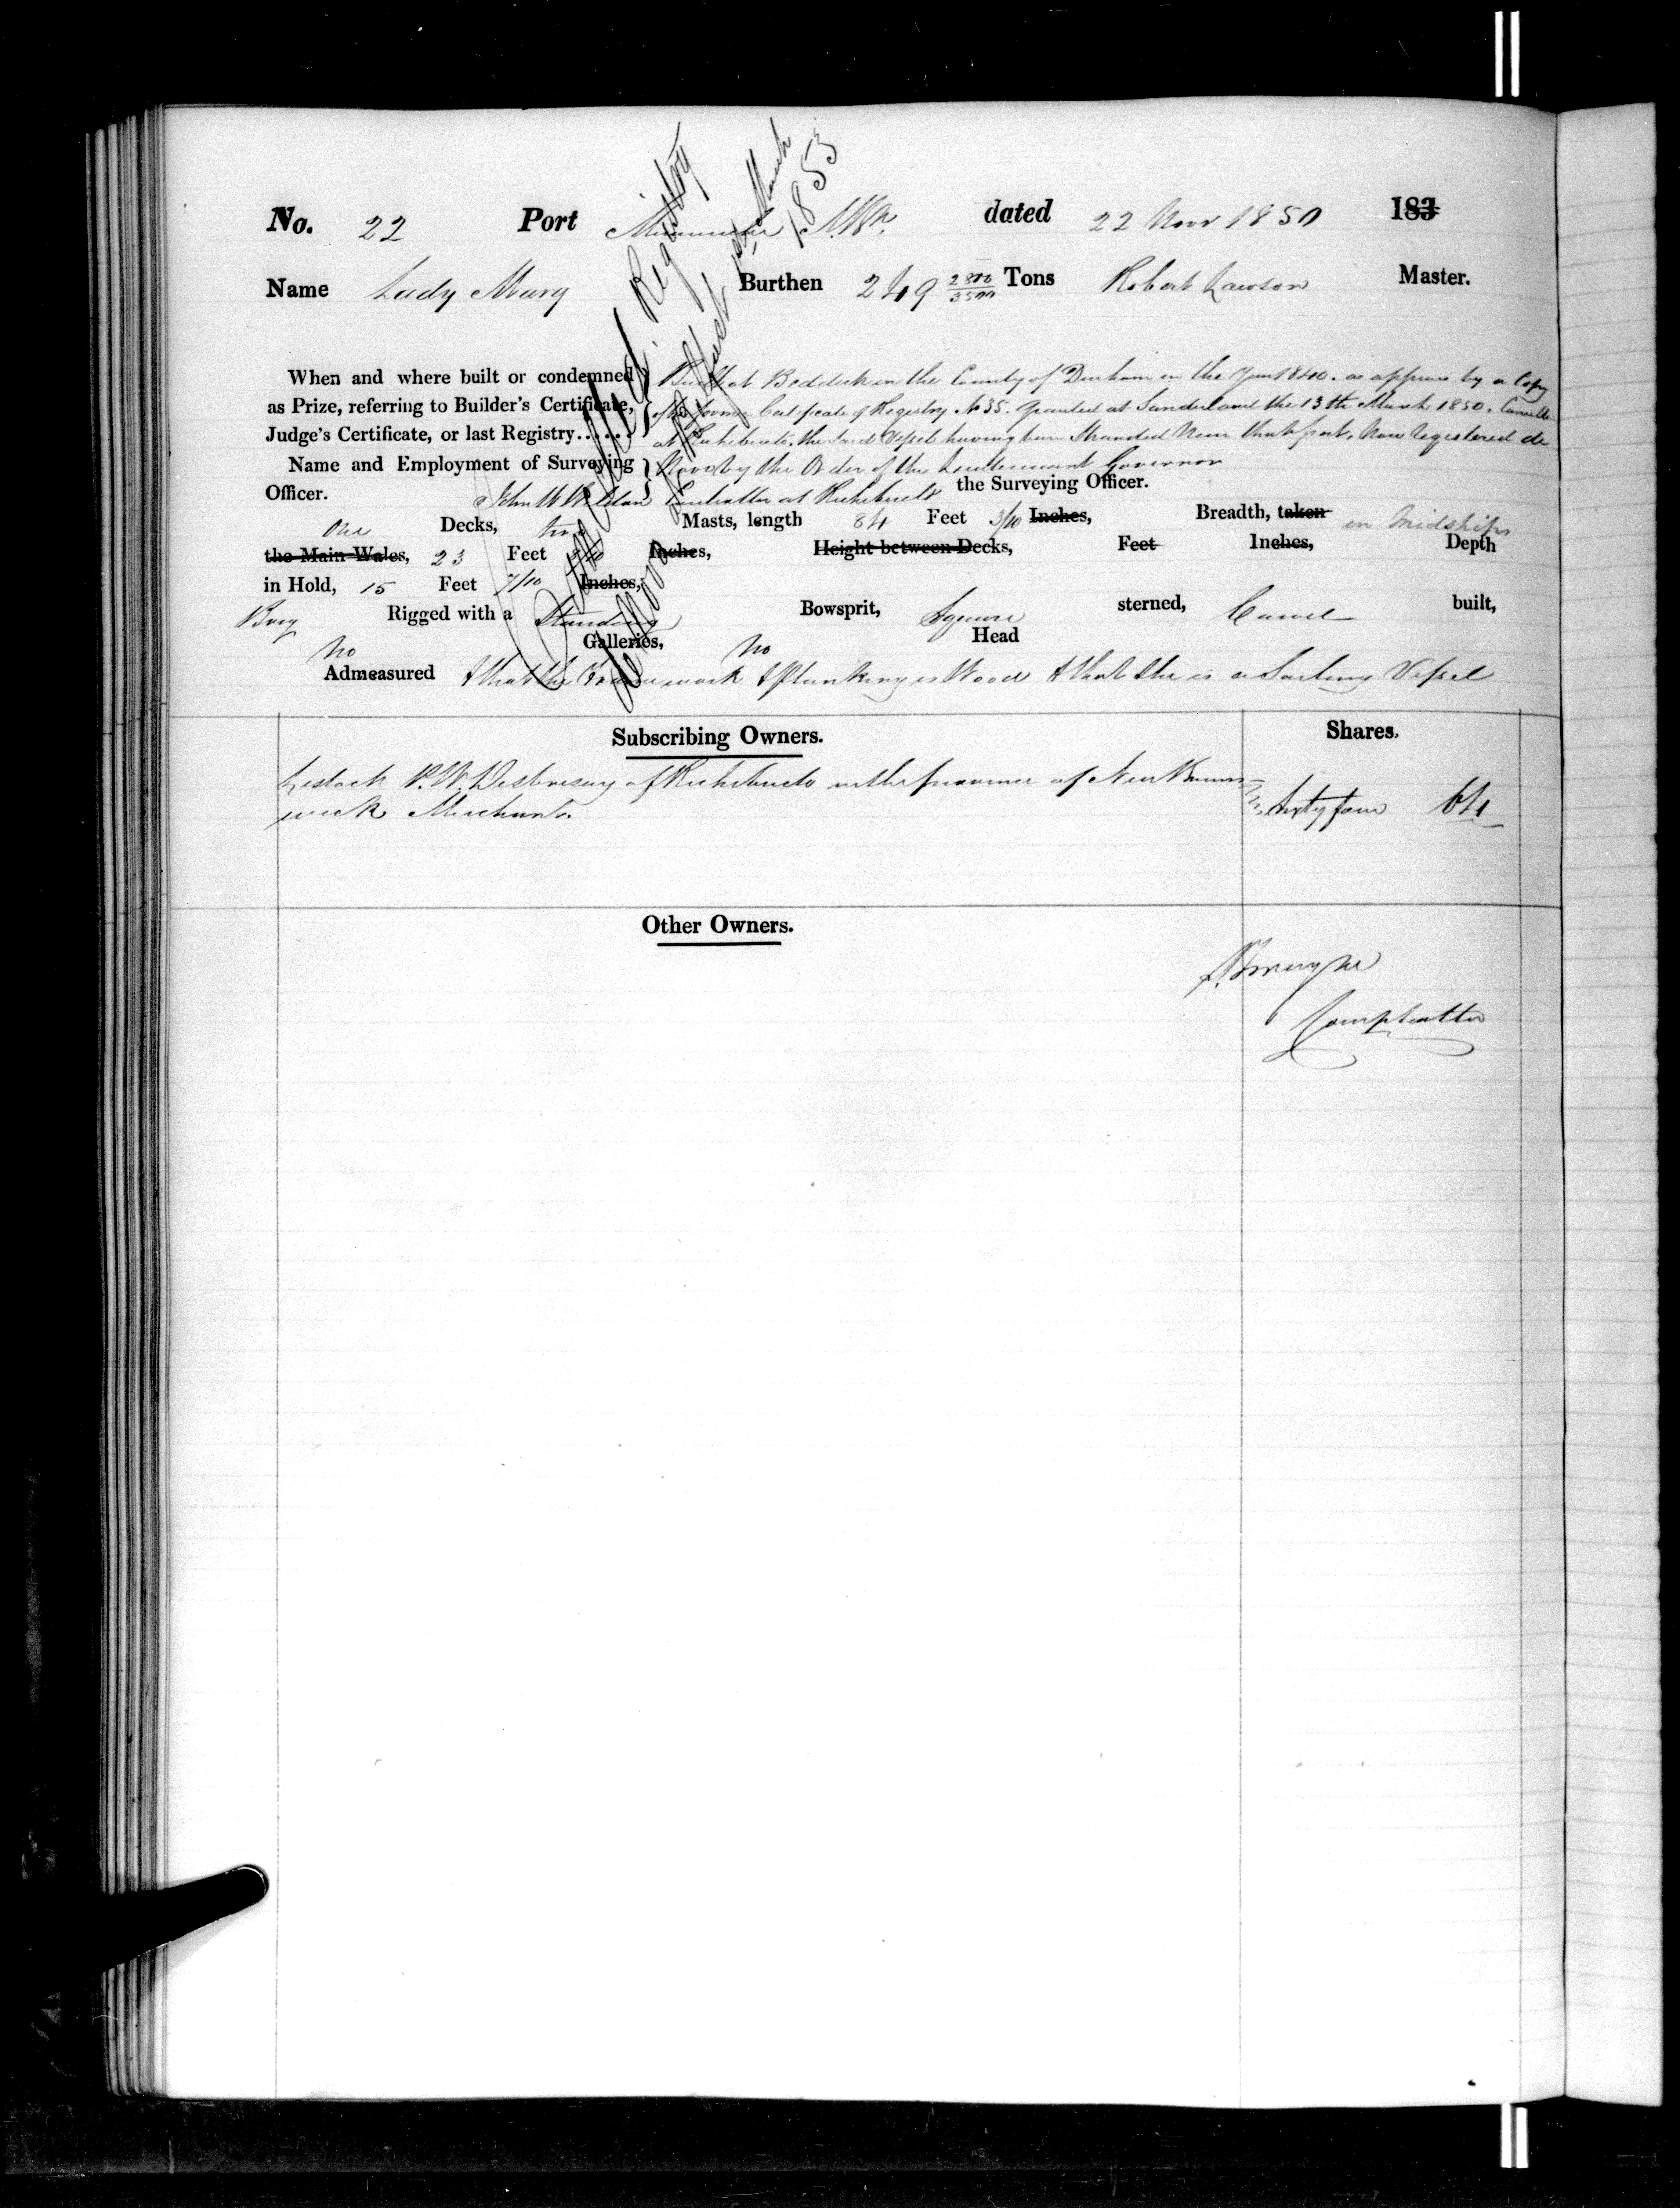 No. 22 Port Miramichi N.Bk. dated 22 Novr 1850 183
Name Lady Mary Burthen 249 2800/3500 Tons Robert Lawson Master.
When and where built or condemned Built at Boddick in the County of Durham in the Year 1840. as appears by a Copy
as Prize, referring to Builder's Certificate, of the former Certificate of Registry No 35. Granted at Sunderland the 13th March 1850. Cancelld
Judge's Certificate, or last Registry...... at Richibucto. the Said Vessel having been Stranded Near that port, Now Registered de
Name and Employment of Surveying Novo by the Order of the Lieutenant Governor
Officer. John W Weldon Controller at Richibucto the Surveying Officer.
One Decks, two Masts, length 84 Feet 3/10 Inches, Breadth, taken in Midships
the Main-Wales, 23 Feet Inches, Height between Decks, Feet Inches, Depth
in Hold, 15 Feet 7/10 Inches,
Brig Rigged with a Standing Bowsprit, Square sterned, Carvel built,
No Galleries, No Head
Admeasured & that the Frame work & Planking is Wood & that she is a Sailing Vessel
Registry
March
1853
Subscribing Owners. Shares.
Lestock P.W. Desbrisay of Richibucto in the province of New Bruns-
wick Merchant. Sixty four 64
Other Owners.
Comptroller